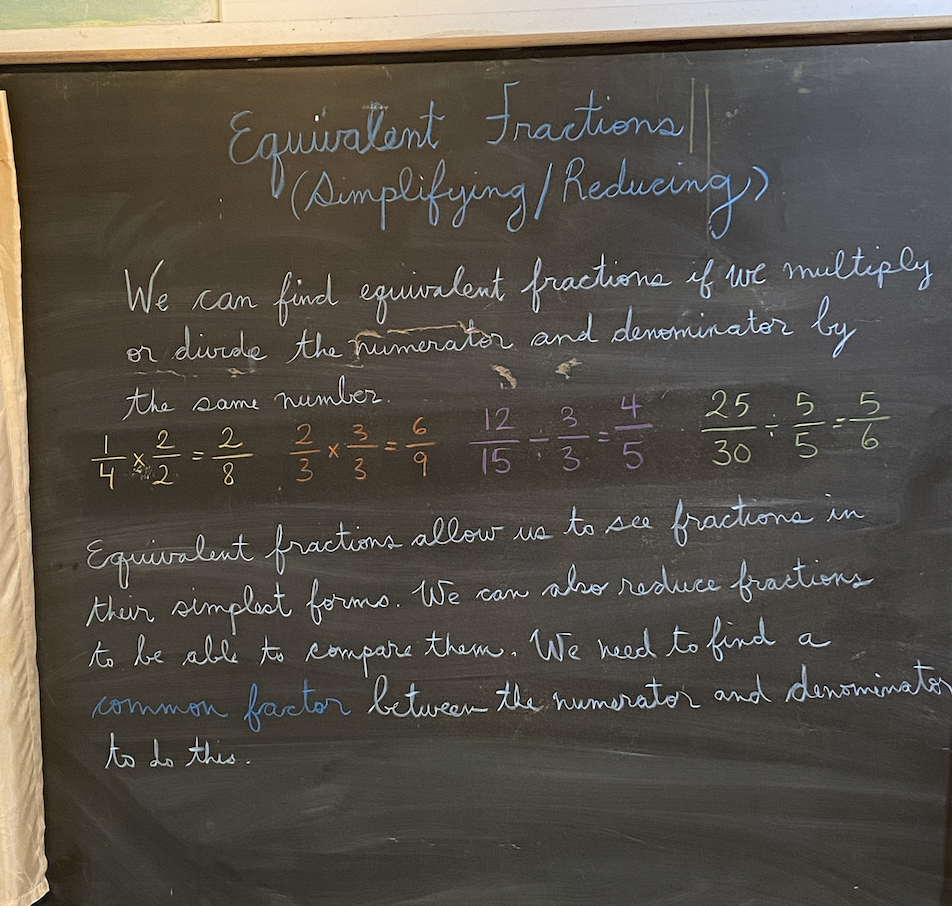 Equivalent Fractions
(Simplifying/Reducing)
We can find equivalent fractions if we multiply
or divide the numerator and denominator by
the same number.
1/4 × 2/2 = 2/8 2/3 × 3/3 = 6/9 12/15 - 3/3 = 4/5 25/30 ÷ 5/5 = 5/6
Equivalent fractions allow us to see fractions in
their simplest forms. We can also reduce fractions
to be able to compare them. We need to find a
common factor between the numerator and denominator
to do this.